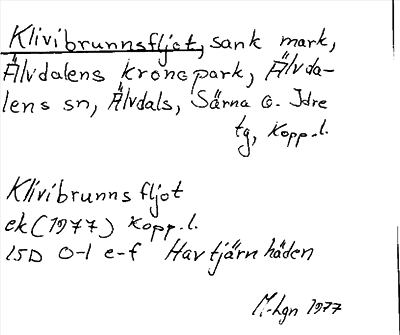 Klivibrunnsfljot, sank mark,
Älvdalens kronopark, Älvda-
lens sn, Älvdals, Särna o. Idre
tg, Kopp.l.
Klivibrunnsfljot
ek (1977) Kopp.l.
15D 0-1 e-f Havtjärnhäden
M-Lgn 1977